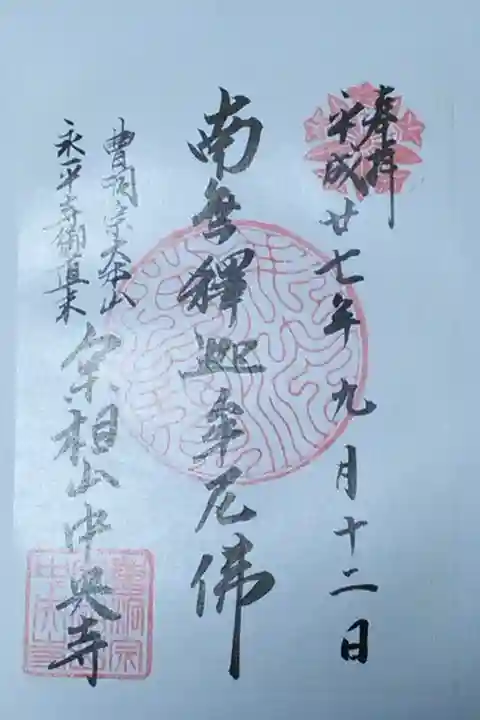 奉拝
平成廿七年九月十二日
南無釋迦牟尼佛
曹洞宗大本山
永平寺御直末
宗相山中興寺